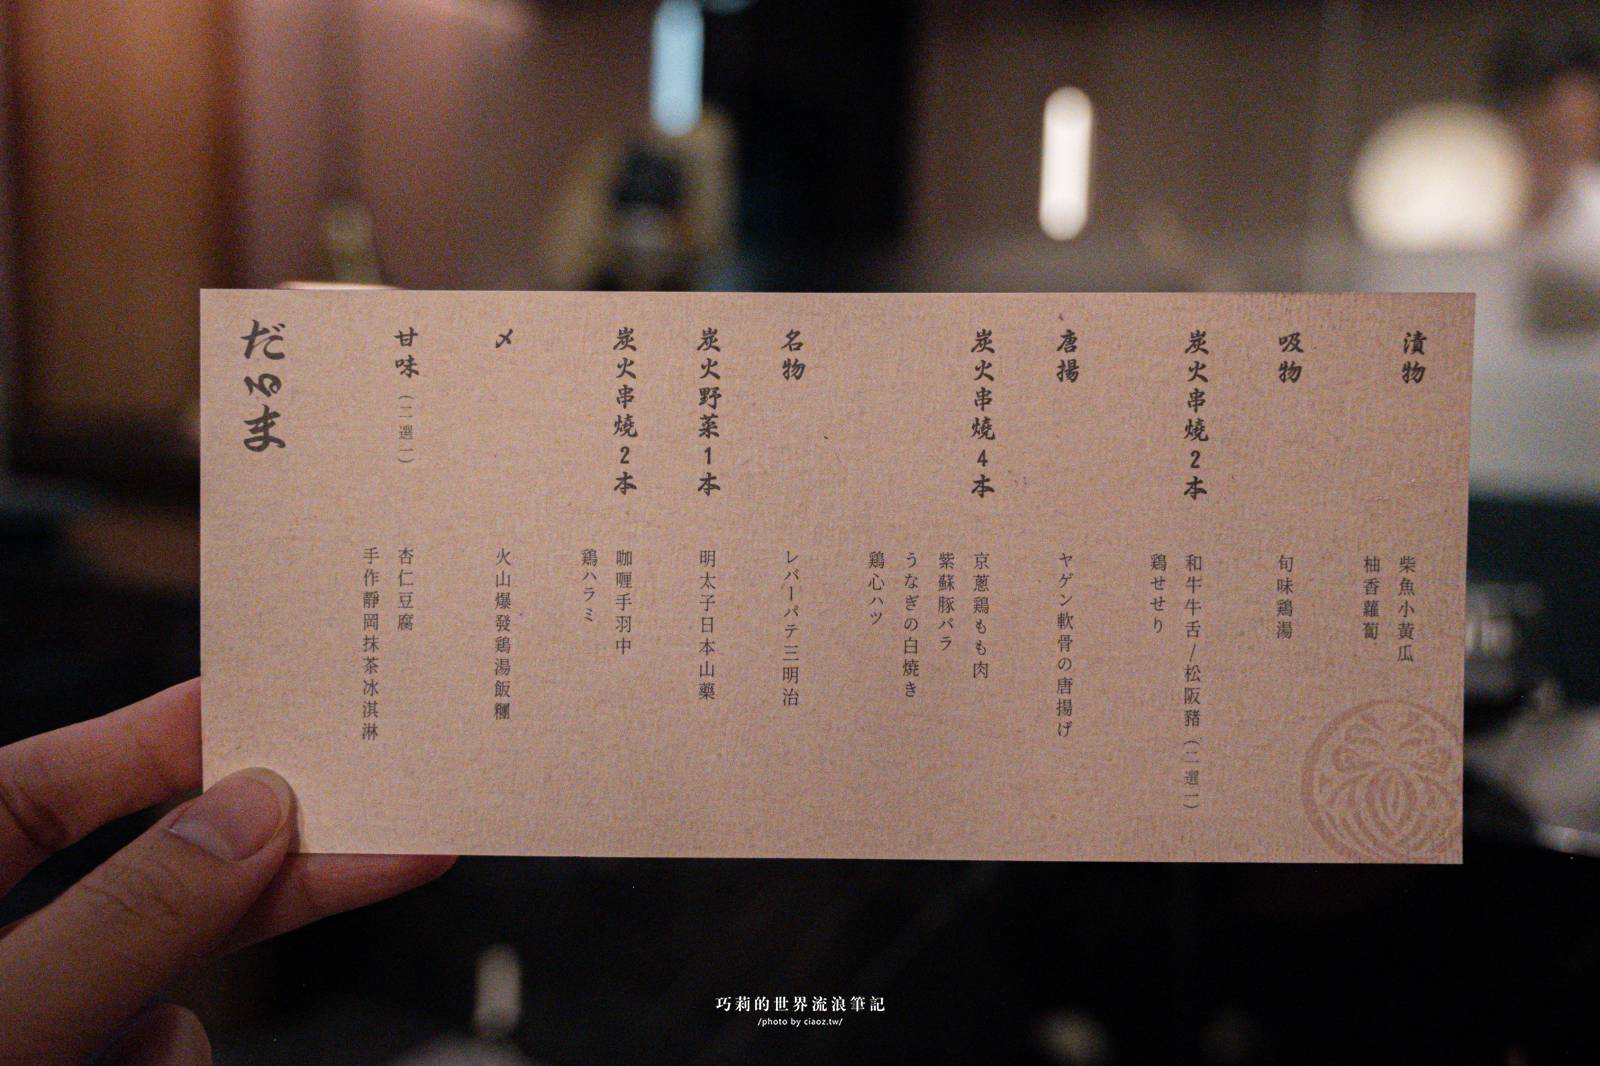 漬物
柴魚小黃瓜
柚香蘿蔔
吸物
旬味鶏湯
炭火串燒2本
和牛牛舌/松阪豬(二選一)
鶏せせり
唐揚
ヤゲン軟骨の唐揚げ
炭火串燒4本
京蔥鶏もも肉
紫蘇豚バラ
うなぎの白焼き
鶏心ハツ
名物
レバーパテ三明治
炭火野菜1本
明太子日本山藥
炭火串燒2本
咖喱手羽中
鶏ハラミ
〆
火山爆發鶏湯飯糰
甘味(二選一)
杏仁豆腐
手作靜岡抹茶冰淇淋
だるま
巧莉的世界流浪筆記
/photo by ciaoz.tw/